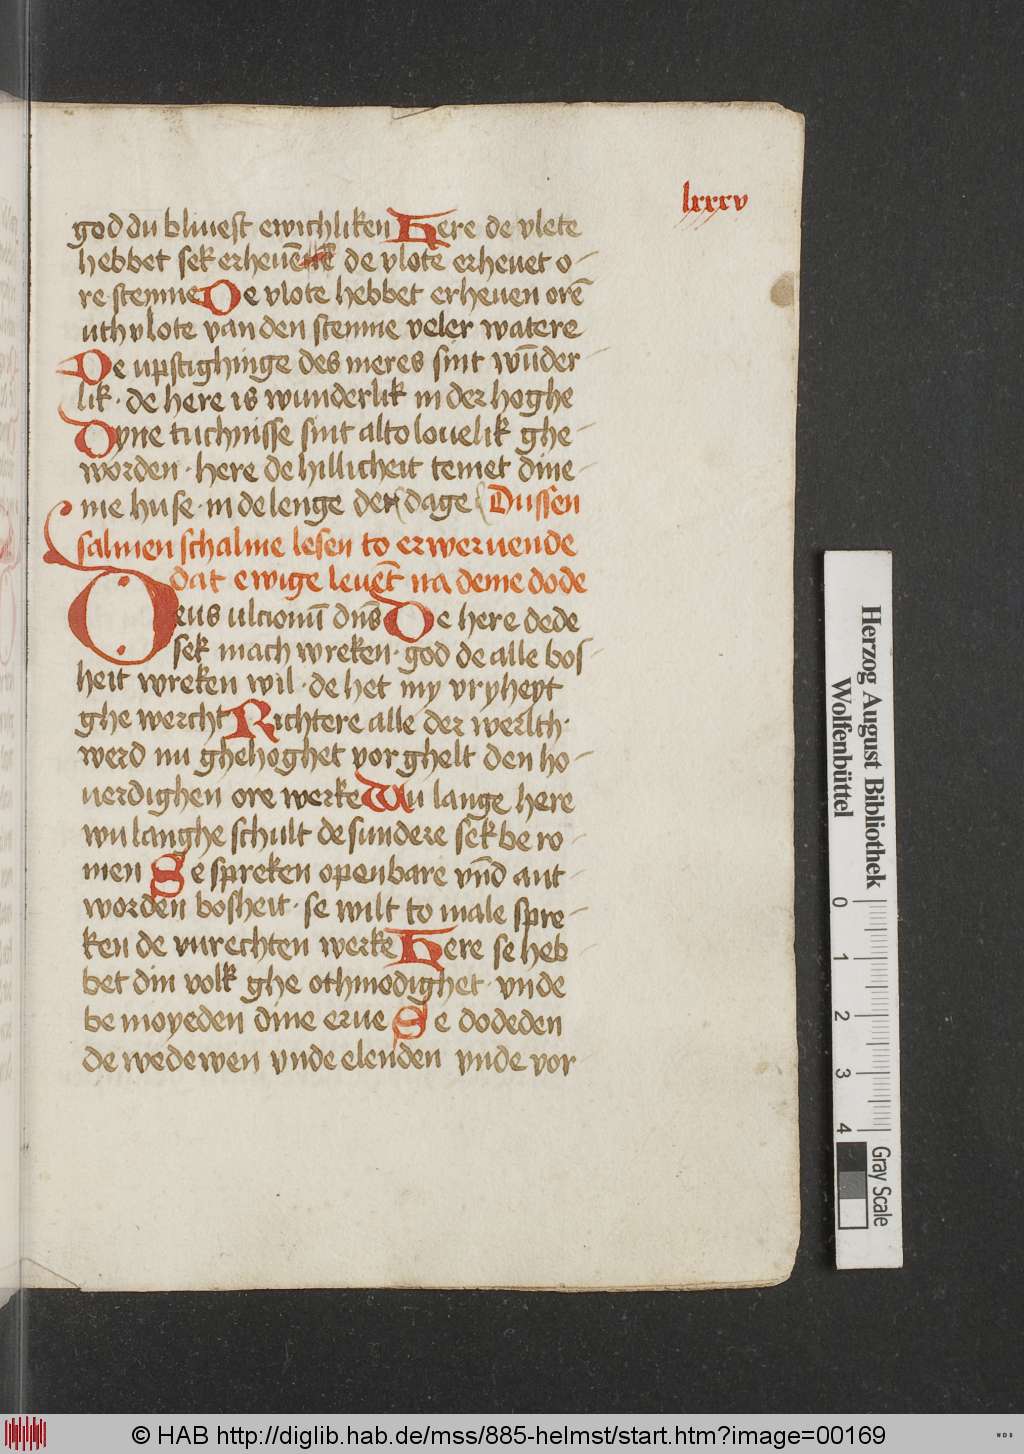 lxxxv
god du bliuest ewichliken Here de vlete
hebbet sek erheuē de vlote erheuet o-
re stemme De vlote hebbet erheuen orē
uth vlote van den stemme veler watere
De upstighinge des meres sint wūder-
lik · de here is wunderlik in der hoghe
Dyne tuchnisse sint alto louelik ghe-
worden · here de hillicheit temet dine-
me huse · in de lenge der dage Dussen
salmen schalme lesen to erweruende
dat ewige leuēt na deme dode
Deus ulcionū dn̄s De here dede
sek mach wreken · god de alle bos-
heit wreken wil · de het my vryheyt
ghe wercht Richtere alle der werlth·
werd nu ghehoghet vor ghelt den ho-
uerdighen ore werke Wu lange here
wu langhe schult de sundere sek be ro-
men Se spreken openbare vn̄d ant-
worden bosheit · se wilt to male spre-
ken de vnrechten werke Here se heb-
bet din volk ghe othmodighet · vnde
be moyeden dine erue Se dodeden
de wedewen vnde elenden vnde vor-
Herzog August Bibliothek
Wolfenbüttel
0 1 2 3 4
Gray Scale
© HAB http://diglib.hab.de/mss/885-helmst/start.htm?image=00169